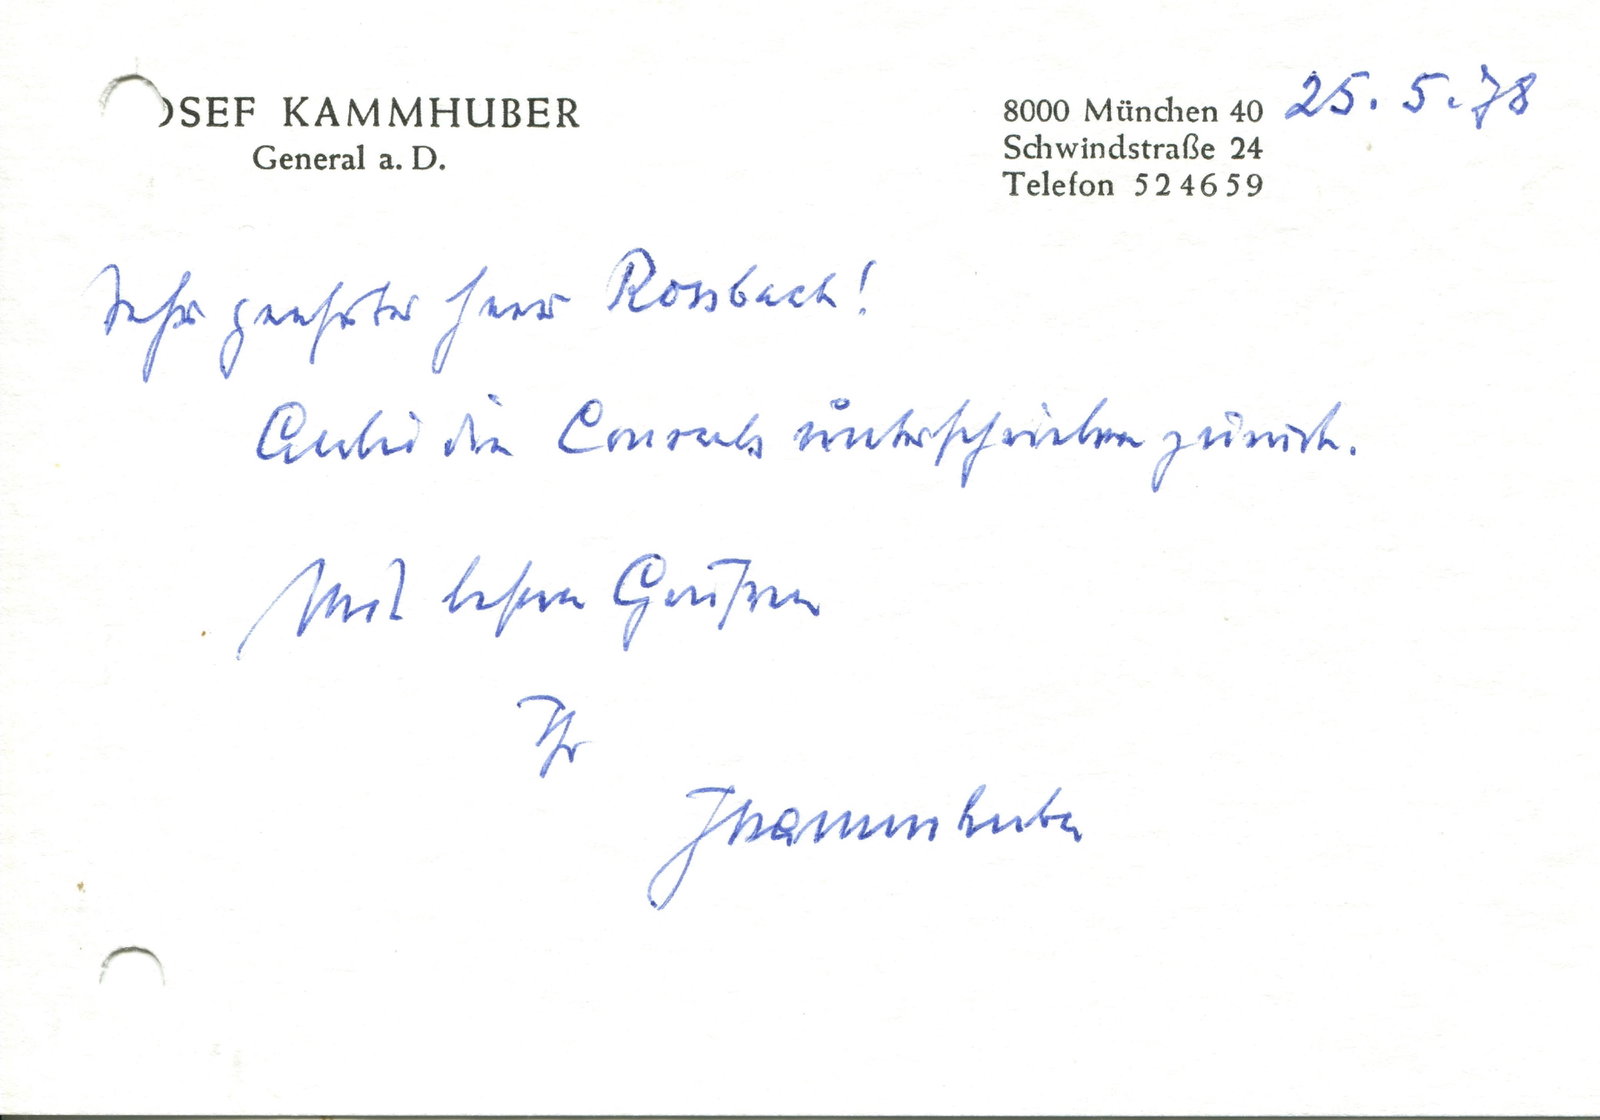 OSEF KAMMHUBER
General a. D.
8000 München 40
Schwindstraße 24
Telefon 524659
25. 5. 78
Sehr geehrter Herr Rossbach!
Anbei die Couverts unterschrieben zurück.
Mit besten Grüßen
Ihr
JKammhuber